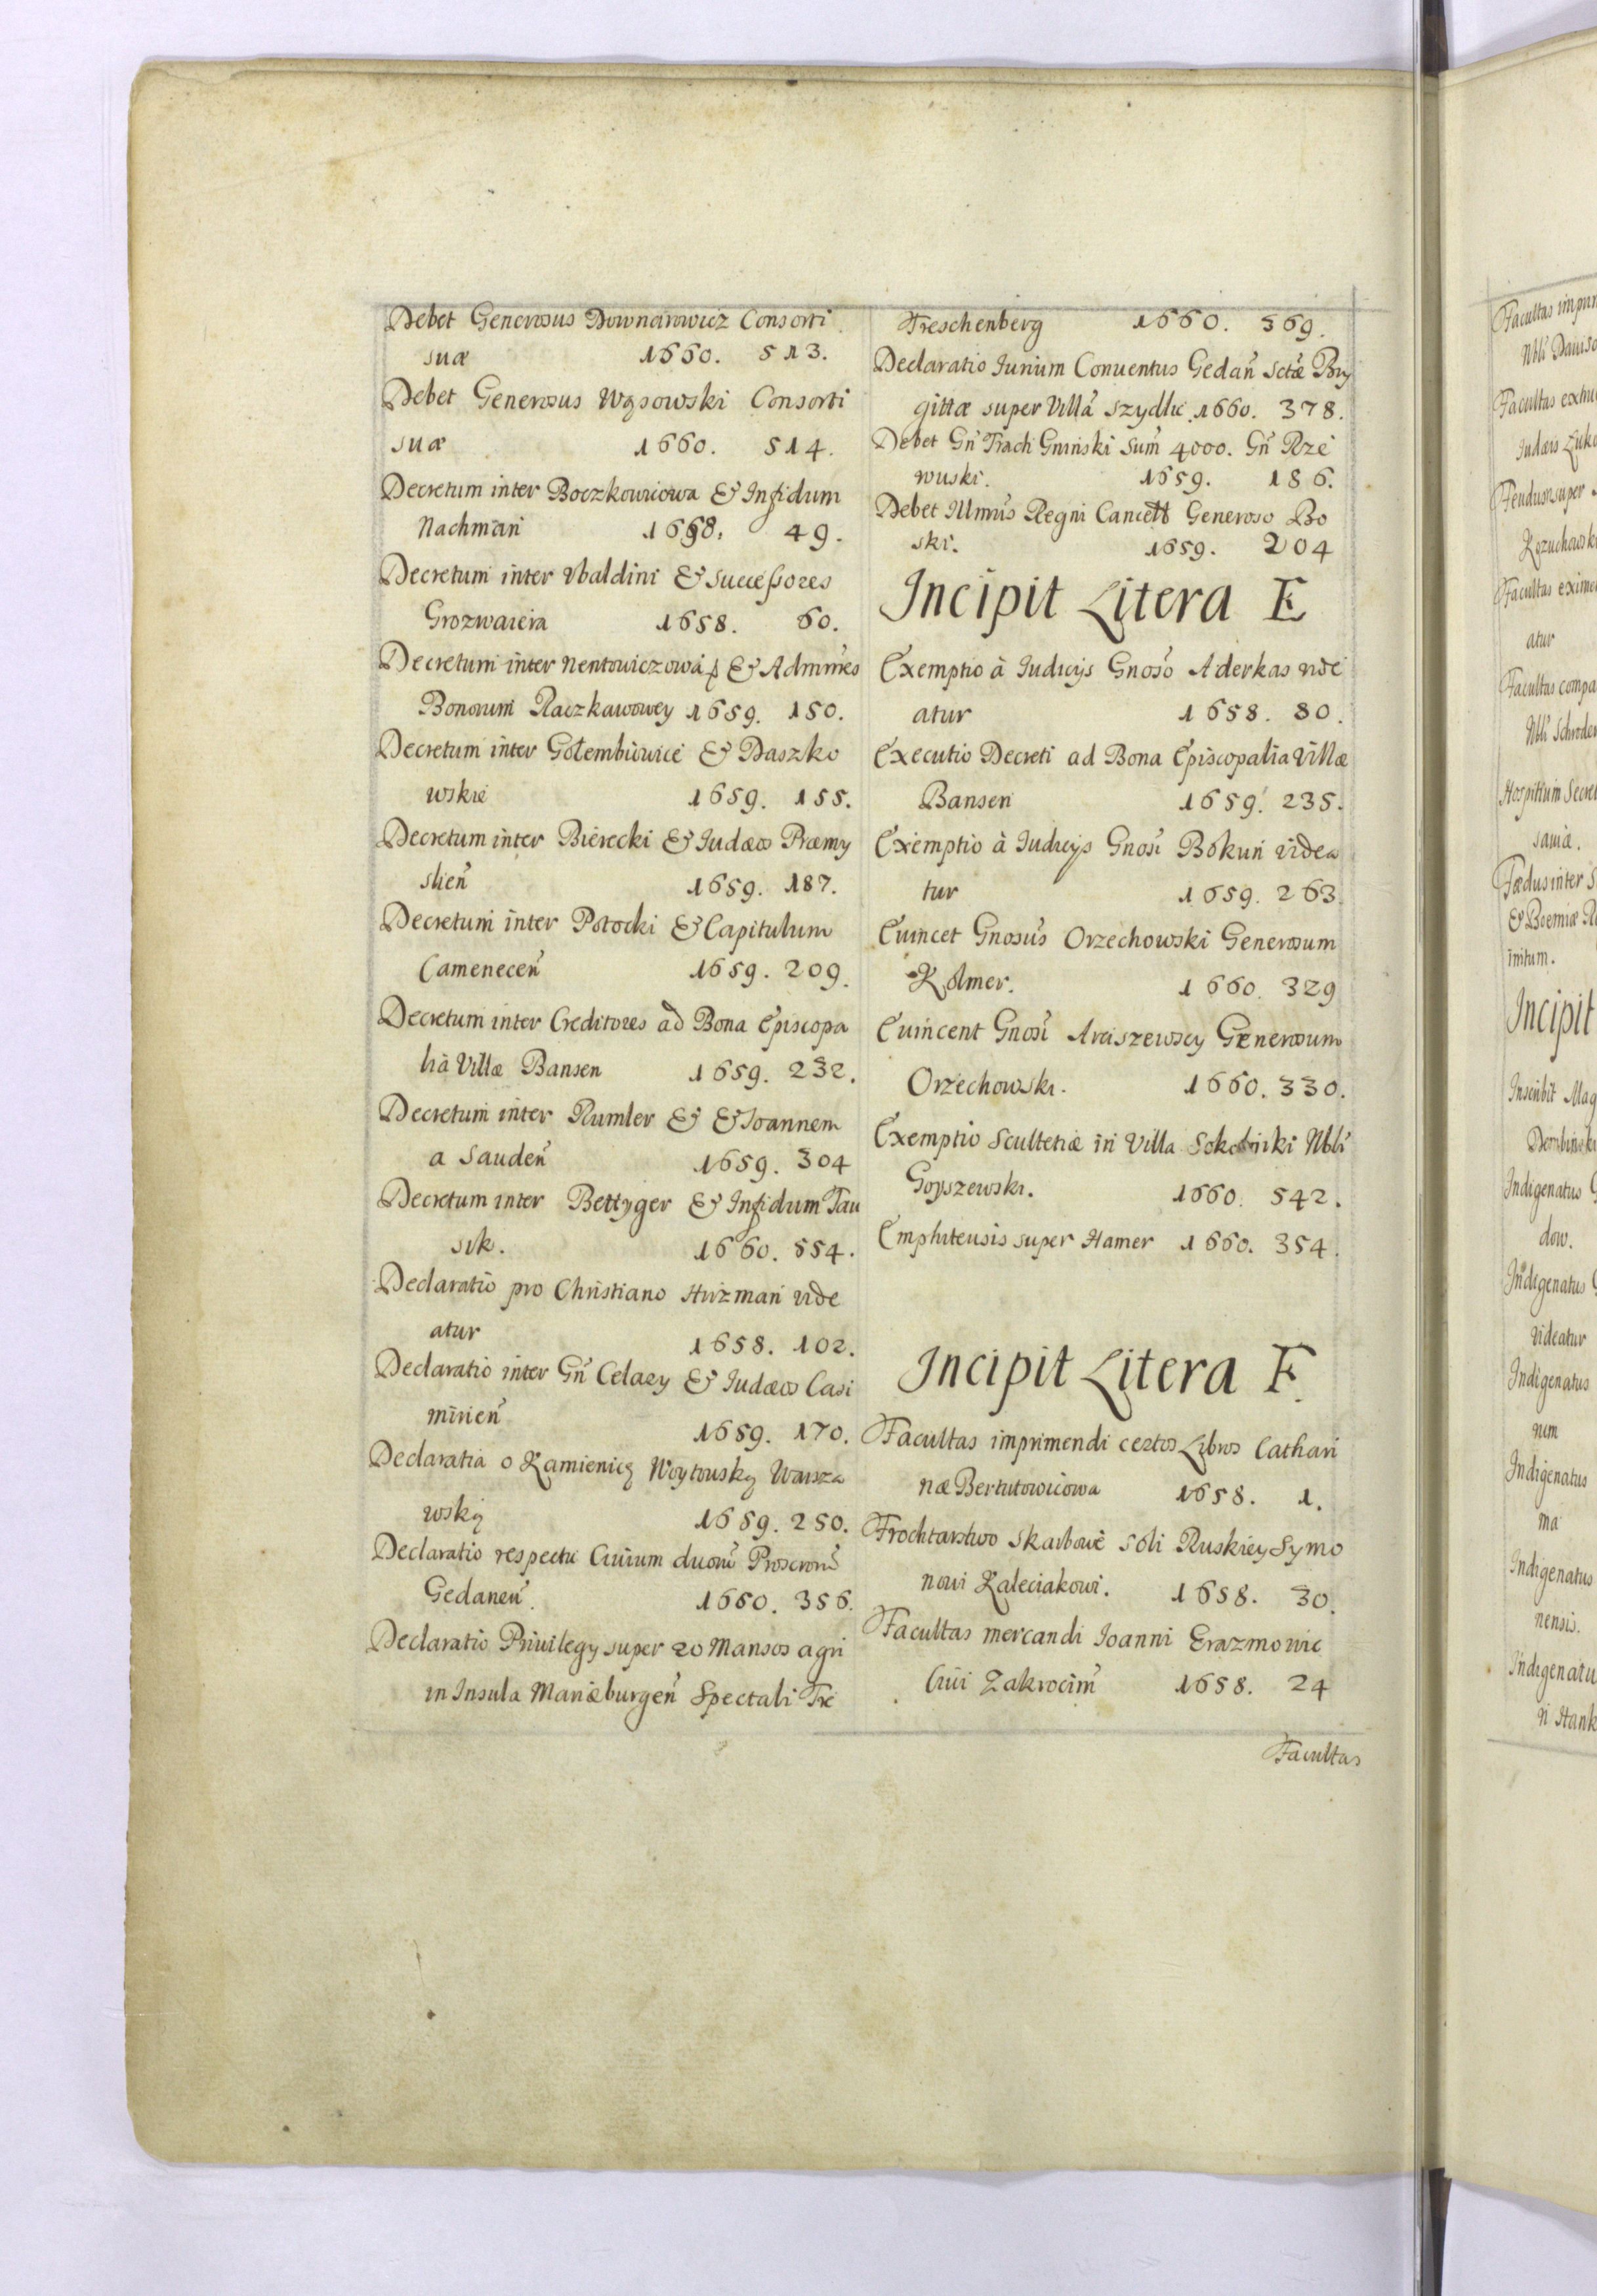 Debet Generosus Downarowicz Consorti
suæ 1660. 513.
Debet Generosus Wąsowski Consorti
suæ 1660. 514.
Decretum inter Boczkowicowa & Infidum
Nachman 1658. 49.
Decretum inter Vbaldini & Successores
Grozwaiera 1658. 60.
Decretum inter & Adminres
Bonorum Raczkawowey 1659. 150.
Decretum inter Gołembiowice & Daszko
wskie 1659. 155.
Decretum inter Bierecki & Iudæos Præmy
slien 1659. 187.
Decretum inter Potocki & Capitulum
Camenecen 1659. 209.
Decretum inter Creditores ad Bona Episcopa
lia Villæ Bansen 1659. 232.
Decretum inter Rumler & & Ioannem
a Sauden 1659. 304
Decretum inter Bettyger & Infidum Tau
sik. 1660. 554.
Declaratio pro Christiano Hirzman vide
atur 1658. 102.
Declaratio inter Gn Celary & Iudæos Casi
mirien 1659. 170.
Declaratia o Kamienicę Woytowską Warsza
wską 1659. 250.
Declaratio respectu Ciuium duorum
Gedanen. 1660. 356.
Declaratio Priuilegy super 20 Mansos agri
in Insula Mariæburgen Spectali Tre
Treschenberg 1660. 369.
Declaratio Iurium Conuentus Gedan Sctæ Bry
gittæ super Villa Szydlic 1660. 378.
Debet Gn Trach Gninski Sum 4000. Gn Rze
wuski. 1659. 186.
Debet Illmus Regni Cancell Generoso Bo
ski. 1659. 204
Incipit Litera E
Exemptio à Iudicys Gnoso Aderkas vide
atur 1658. 80.
Executio Decreti ad Bona Episcopalia Villæ
Bansen 1659. 235.
Exemptio à Iudicys Gnosi Bokun videa
tur 1659. 263
Euincet Gnosus Orzechowski Generosum
Kolmer. 1660. 329
Euincent Gnosi Arciszewscy Generosum
Orzechowski. 1660. 330.
Exemptio Scultetiæ in Villa Sokolniki Nbli
Goyszewski. 1660. 542.
Emphiteusis super Hamer 1660. 354.
Incipit Litera F.
Facultas imprimendi certos Libros Cathari
næ Bertutowicowa 1658. 1.
Frochtarstwo Skarbowe Soli Ruskiey Symo
nowi Kaleciakowi. 1658. 30.
Facultas mercandi Ioanni Erazmowic
Ciui Zakrocim 1658. 24
Facultas
Nbli
Facultas
Iudæis
super
Facultas
atur
Facultas
Nbli
Hospitium
Fædus inter
& Boemiæ
initum.
Incipit
Inscribit Mag
Indigenatus
dow.
Indigenatus
Videatur
Indigenatus
num
Indigenatus
ma
Indigenatus
nensis.